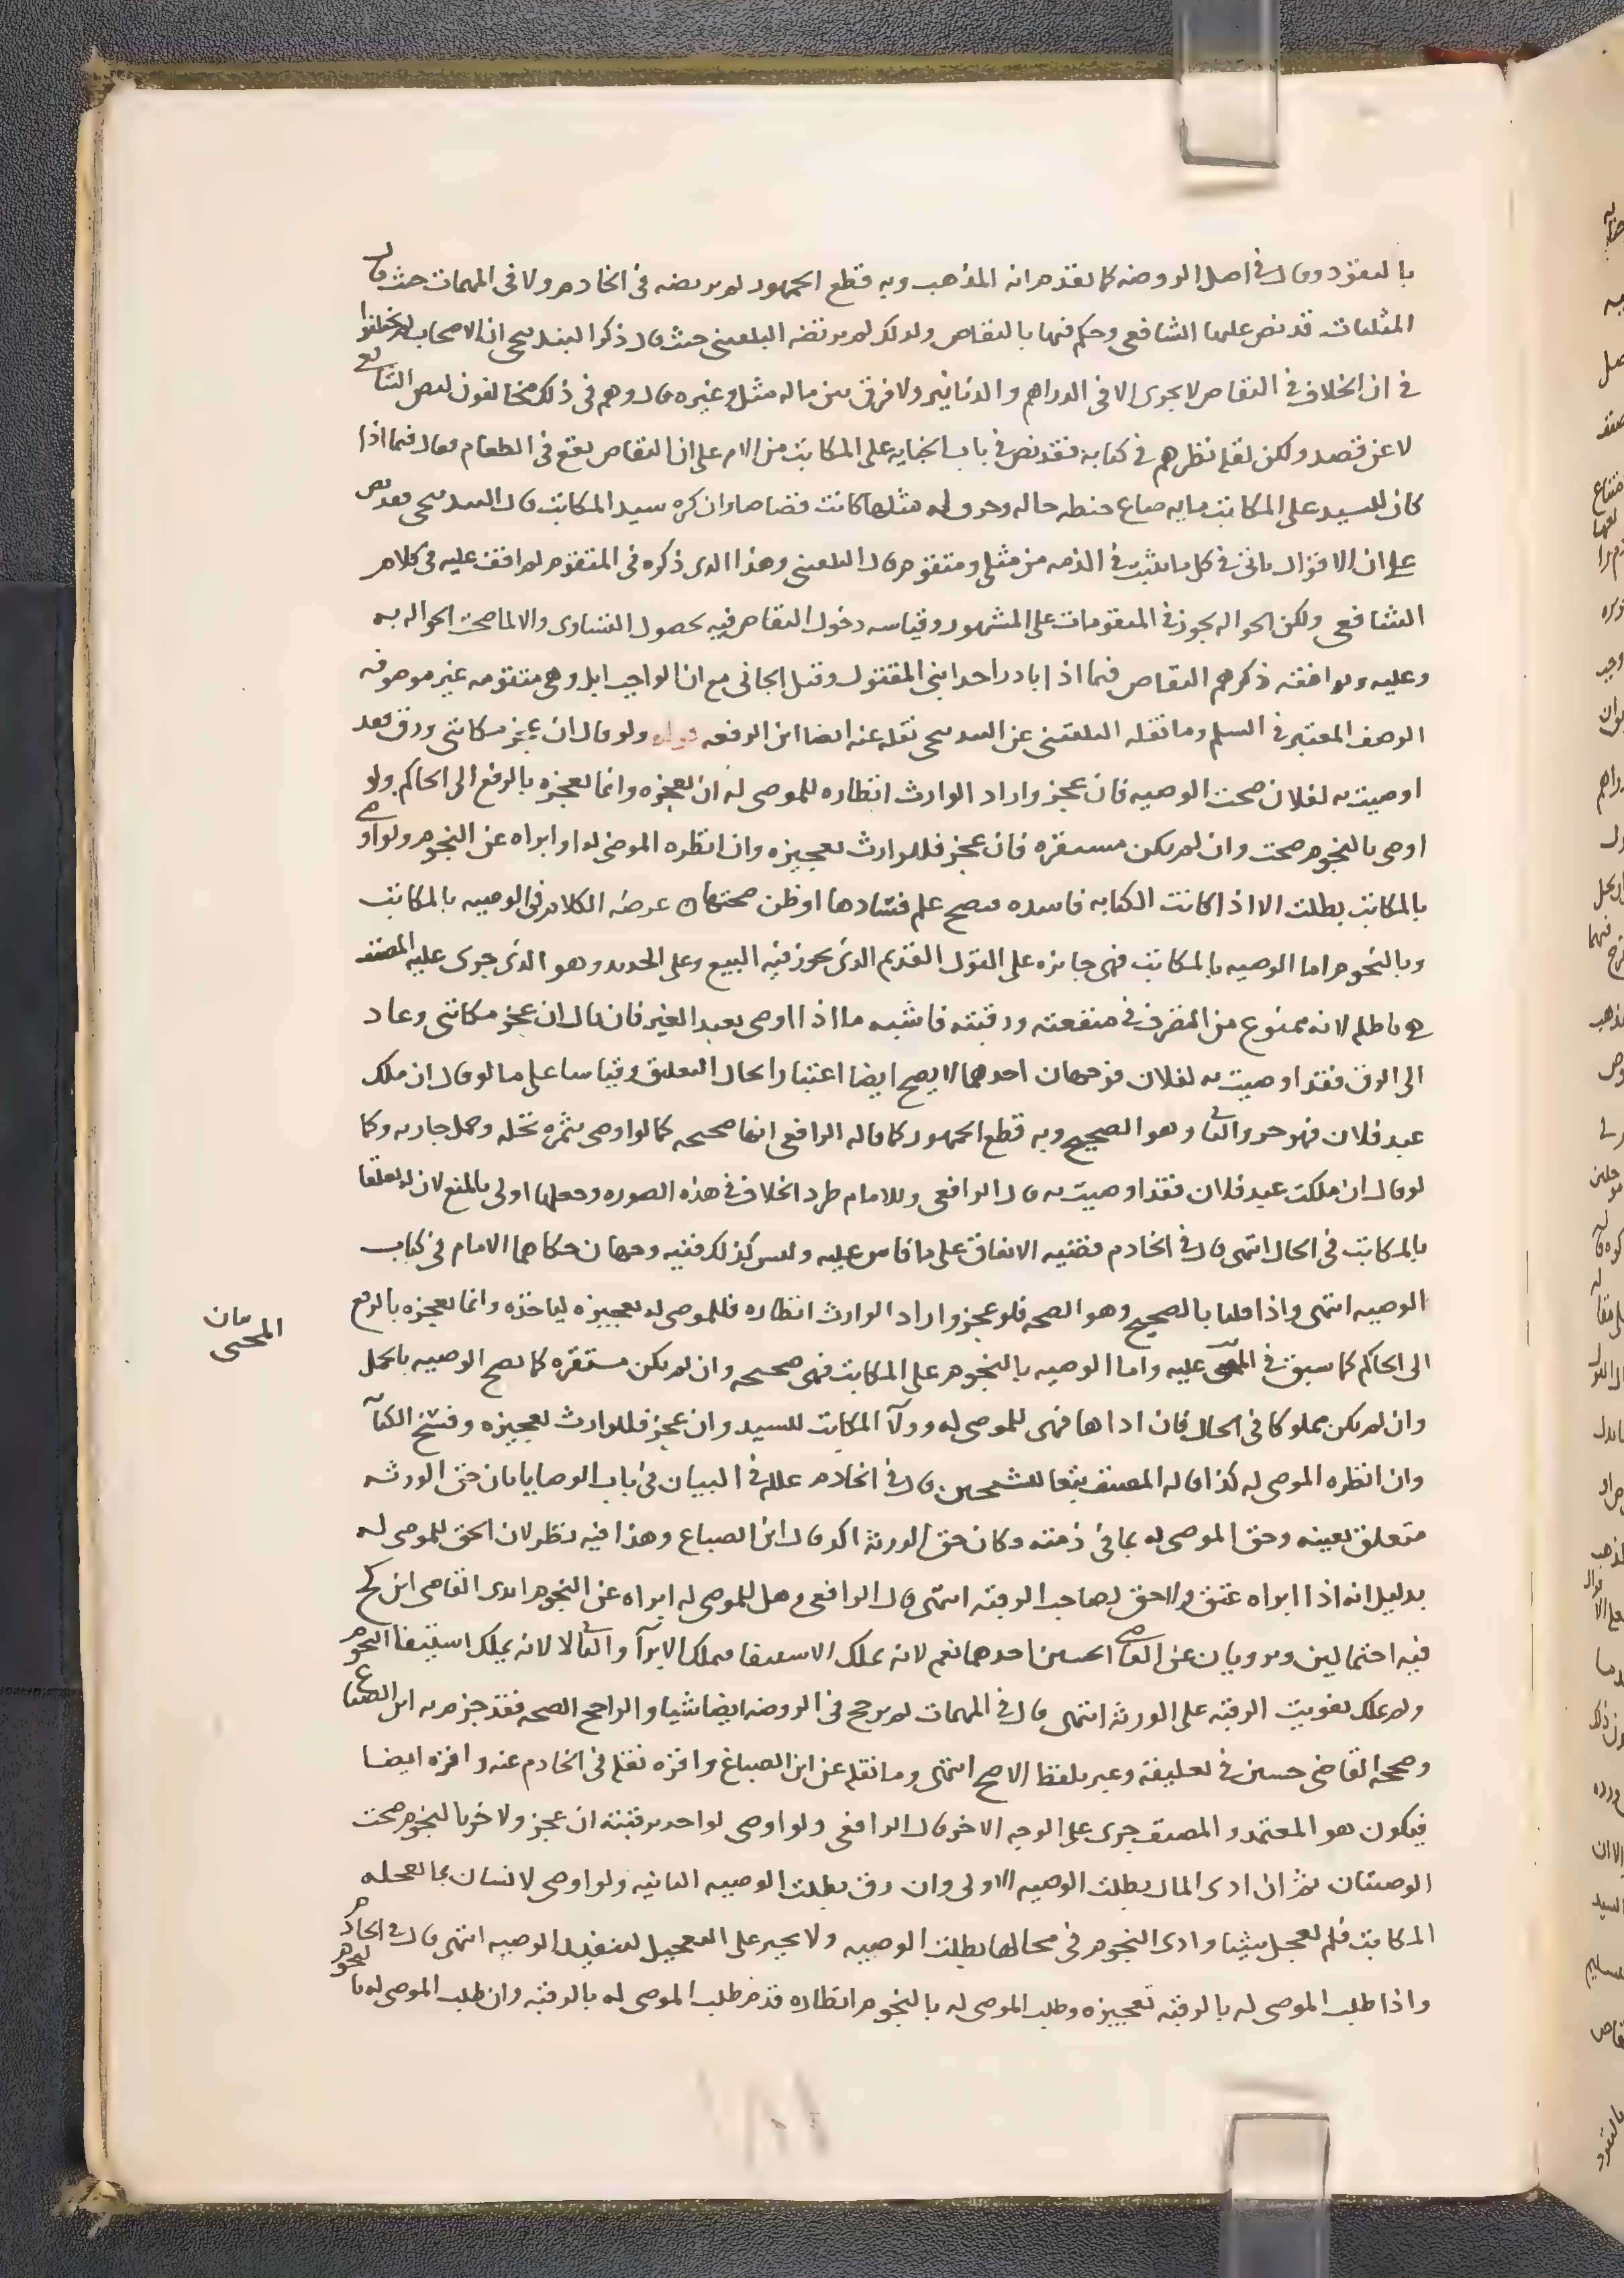 بالنقود وقال في اصل الروضه كما تقدم انه المذهب وبه قطع الجمهور لم يرتضه في الخادم ولا في المهمات حيث قال
المثليات قد نص عليها الشافعي وحكم فيها بالتقاص ولذلك لم يرتضه البلقيني حيث قال ذكر البندنيجي ان الاصحاب لم يختلفوا
في ان الخلاف في التقاص لا يجري الا في الدراهم والدنانير ولا فرق بين ما له مثل وغيره قال وهم في ذلك مخالفون لنص الشافعي
لا عن قصد ولكن لقله نظرهم في كتابه فقد نص في باب الجنايه على المكاتب من الام على ان التقاص يقع في الطعام فقال فيما اذا
كان للسيد على المكاتب مايه صاع حنطه حاله وحرق له مثلها كانت قصاصا وان كره سيد المكاتب قال البندنيجي فقد نص
على ان الاقوال تاتي في كل ما يثبت في الذمه من مثلي ومتقوم قال البلقيني وهذا الذي ذكره في المتقوم لم اقف عليه في كلام
الشافعي ولكن الحواله تجوز في المتقومات على المشهور وقياسه دخول التقاص فيه لحصول التساوي والا لما صحت الحواله به
وعليه ويوافقه ذكرهم التقاص فيما اذا بادر احد ابني المقتول وقتل الجاني مع ان الواجب ابل وهي متقومه غير موصوفه
الوصف المعتبر في السلم وما نقله البلقيني عن البندنيجي نقله عنه ايضا ابن الرفعه قوله ولو قال ان عجز مكاتبي ورق فقد
اوصيت به لفلان صحت الوصيه فان عجز واراد الوارث انتظاره للموصى له ان يعجزه وانما يعجزه بالرفع الى الحاكم ولو
اوصى بالنجوم صحت وان لم يكن مستقره فان عجز فللوارث تعجيزه وان انظره الموصى له او ابراه عن النجوم ولو اوصى
بالمكاتب بطلت الا اذا كانت الكتابه فاسده فتصح علم فسادها او ظن صحتها ه غرضه الكلام في الوصيه بالمكاتب
وبالنجوم اما الوصيه بالمكاتب فهي جايزه على القول القديم الذي يجوز فيه البيع وعلى الجديد وهو الذي جرى عليه المصنف
هي باطله لانه ممنوع من التصرف في منفعته ورقبته فاشبه ما اذا اوصى بعبد الغير فان قال ان عجز مكاتبي وعاد
الى الرق فقد اوصيت به لفلان فوجهان احدهما لا يصح ايضا اعتبارا بحال التعليق وقياسا على ما لو قال ان ملكت
عبد فلان فهو حر والثاني وهو الصحيح وبه قطع الجمهور كما قاله الرافعي انها صحيحه كما لو اوصى بثمره نخله وحمل جاريه وكما
لو قال ان ملكت عبد فلان فقد اوصيت به قال الرافعي وللامام طرد الخلاف في هذه الصوره وجعلها اولى بالمنع لان له تعلقا
بالمكاتب في الحال انتهى قال في الخادم فقضيه الاتفاق على ما قاس عليه وليس كذلك ففيه وجهان حكاهما الامام في كتاب
الوصيه انتهى واذا قلنا بالصحيح وهو الصحه فلو عجز واراد الوارث انتظاره فللموصى له تعجيزه لياخذه وانما يعجزه بالرفع
الى الحاكم كما سبق في المجني عليه واما الوصيه بالنجوم على المكاتب فهي صحيحه وان لم يكن مستقره كما تصح الوصيه بالحمل
وان لم يكن مملوكا في الحال فان اداها فهي للموصى له وولآ المكاتب للسيد وان عجز فللوارث تعجيزه وفسخ الكتابة
وان انظره الموصى له كذا قاله المصنف تبعا للشيخين قال في الخادم علله في البيان في باب الوصايا بان حق الورثه
متعلق بعينه وحق الموصى له بما في ذمته وكان حق الورثه اكد قال ابن الصباغ وهذا فيه نظر لان الحق للموصى له
بدليل انه اذا ابراه عتق ولا حق لصاحب الرقبه انتهى قال الرافعي وهل للموصى له ابراه عن النجوم ابدى القاضي ابن كج
فيه احتمالين ويرويان عن القاضي الحسين احدهما نعم لانه يملك الاستيفا فيملك الابرآ والثاني لا لانه يملك استيفا النجوم
ولم يملك تفويت الرقبه على الورثه انتهى قال في المهمات لم يرجح في الروضه ايضا شيا والراجح الصحه فقد جزم به ابن الصباغ
وصححه القاضي حسين في تعليقه وعبر بلفظ الاصح انتهى وما نقله عن ابن الصباغ واقره نقله في الخادم عنه واقره ايضا
فيكون هو المعتمد والمصنف جرى على الوجه الاخر قال الرافعي ولو اوصى لواحد برقبته ان عجز ولاخر بالنجوم صحت
الوصيتان ثم ان ادى المال بطلت الوصيه الاولى وان رق بطلت الوصيه الثانيه ولو اوصى لانسان بما يعجله
المكاتب فلم يعجل شيا وادى النجوم في محالها بطلت الوصيه ولا يجبر على التعجيل لتنفيذ الوصيه انتهى قال في الخادم
واذا طلب الموصى له بالرقبه تعجيزه وطلب الموصى له بالنجوم انتظاره قدم طلب الموصى له بالرقبه وان طلب الموصى له بالنجوم
بيان
المجني